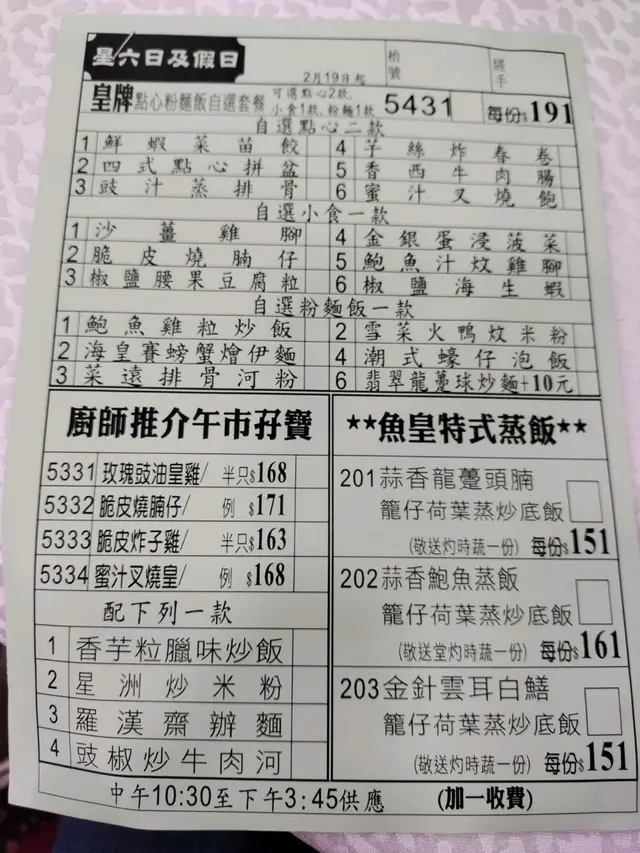 星六日及假日
2月19日起
枱號
經手
皇牌點心粉麵飯自選套餐 可選點心2款, 小食1款, 粉麵1款 5431 每份$191
自選點心二款
1 鮮蝦菜苗餃 4 芋絲炸春卷
2 四式點心拼盆 5 香西牛肉腸
3 豉汁蒸排骨 6 蜜汁叉燒飽
自選小食一款
1 沙薑雞腳 4 金銀蛋浸菠菜
2 脆皮燒腩仔 5 鮑魚汁炆雞腳
3 椒鹽腰果豆腐粒 6 椒鹽海生蝦
自選粉麵飯一款
1 鮑魚雞粒炒飯 2 雪菜火鴨炆米粉
2 海皇賽螃蟹燴伊麵 4 潮式蠔仔泡飯
3 菜遠排骨河粉 6 翡翠龍躉球炒麵+10元
廚師推介午市孖寶
5331 玫瑰豉油皇雞/ 半只$168
5332 脆皮燒腩仔/ 例 $171
5333 脆皮炸子雞/ 半只$163
5334 蜜汁叉燒皇/ 例 $168
配下列一款
1 香芋粒臘味炒飯
2 星洲炒米粉
3 羅漢齋辦麵
4 豉椒炒牛肉河
**魚皇特式蒸飯**
201 蒜香龍躉頭腩
籠仔荷葉蒸炒底飯
(敬送灼時蔬一份) 每份$151
202 蒜香鮑魚蒸飯
籠仔荷葉蒸炒底飯
(敬送堂灼時蔬一份) 每份$161
203 金針雲耳白鱔
籠仔荷葉蒸炒底飯
(敬送灼時蔬一份) 每份$151
中午10:30至下午3:45供應 (加一收費)